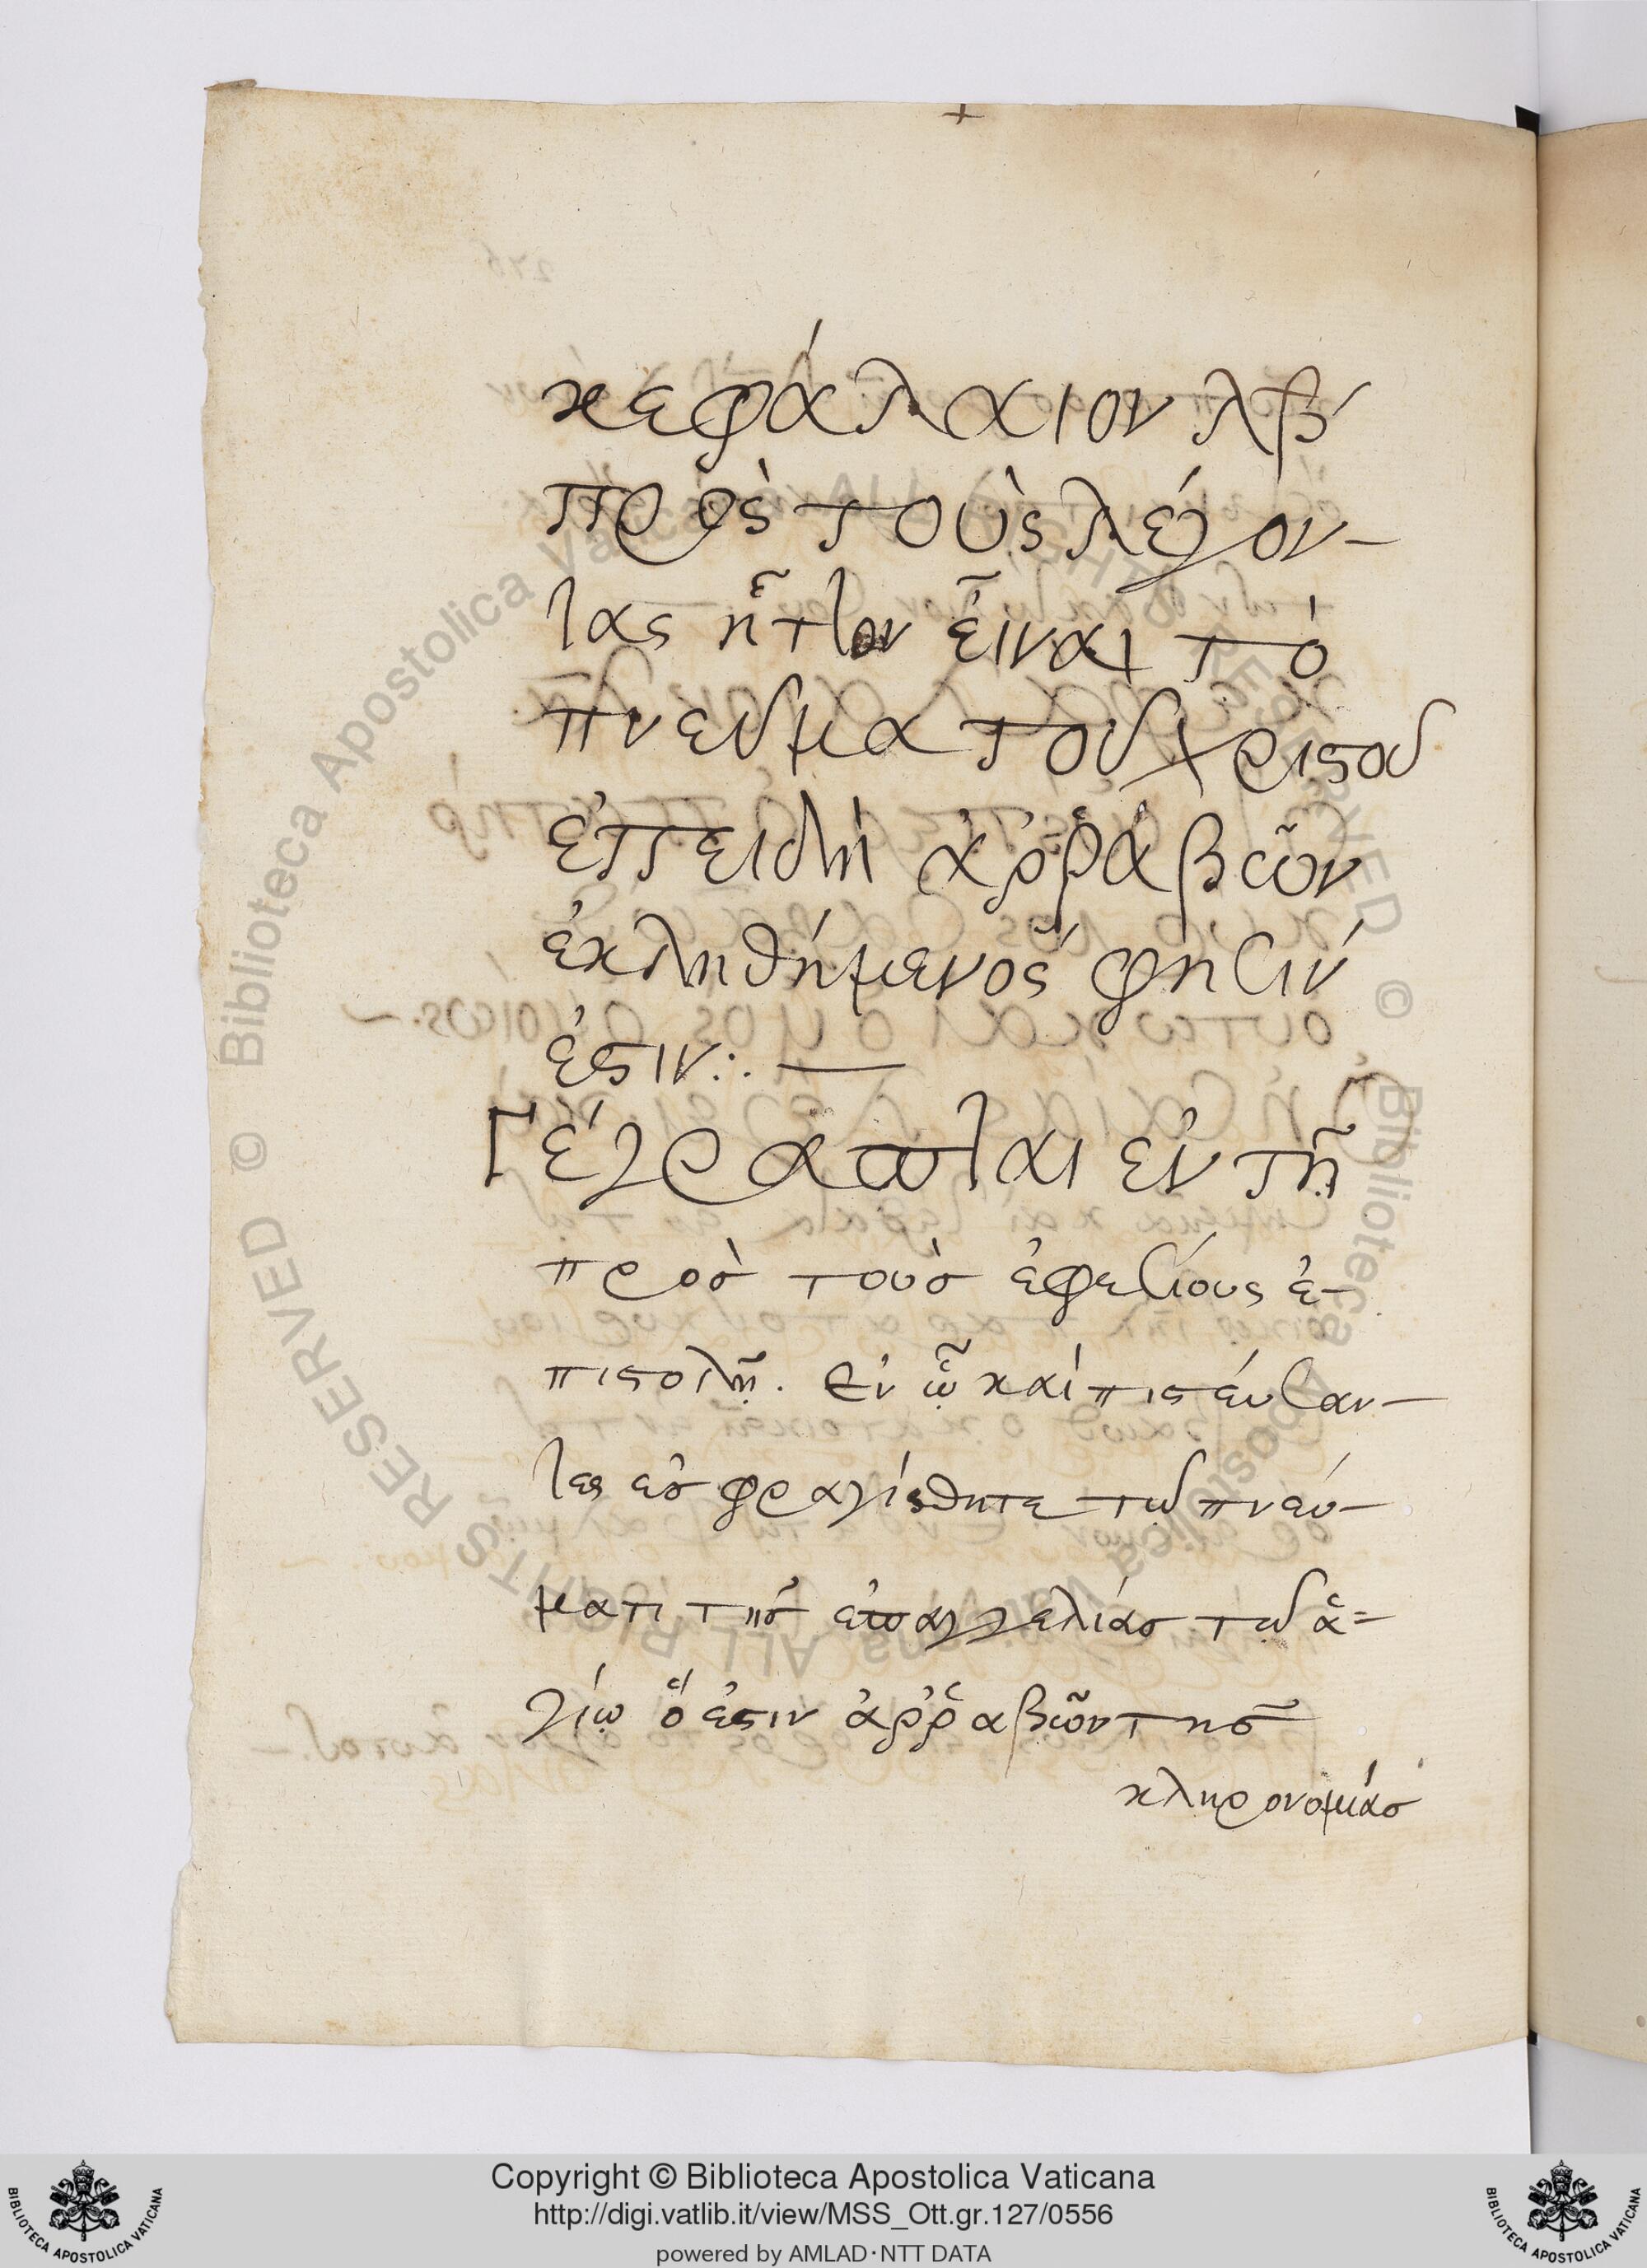 κεφάλαιον λβ´
πρὸς τοὺς λέγον-
τας ἧττον εἶναι τὸ
πνευμα του χριστου
ἐπειδὴ ἀῤῥαβῶν
ἐκληθήμενος φησὶν
ἐστιν:. —
Γέγραπται ἐν τῆ
πρὸσ τοὺσ ἐφεσίους ἐ-
πιστολῆ. Ἐν ᾧ καὶ πιστεύσαν-
τες ἐσφραγίσθητε τω πνεύ-
ματι τῆσ ἐπαγγελίασ τω ἁ=
γίω ὅ ἐστιν ἀῤῥαβῶν τῆσ
κληρονομίασ
Copyright © Biblioteca Apostolica Vaticana
http://digi.vatlib.it/view/MSS_Ott.gr.127/0556
powered by AMLAD·NTT DATA